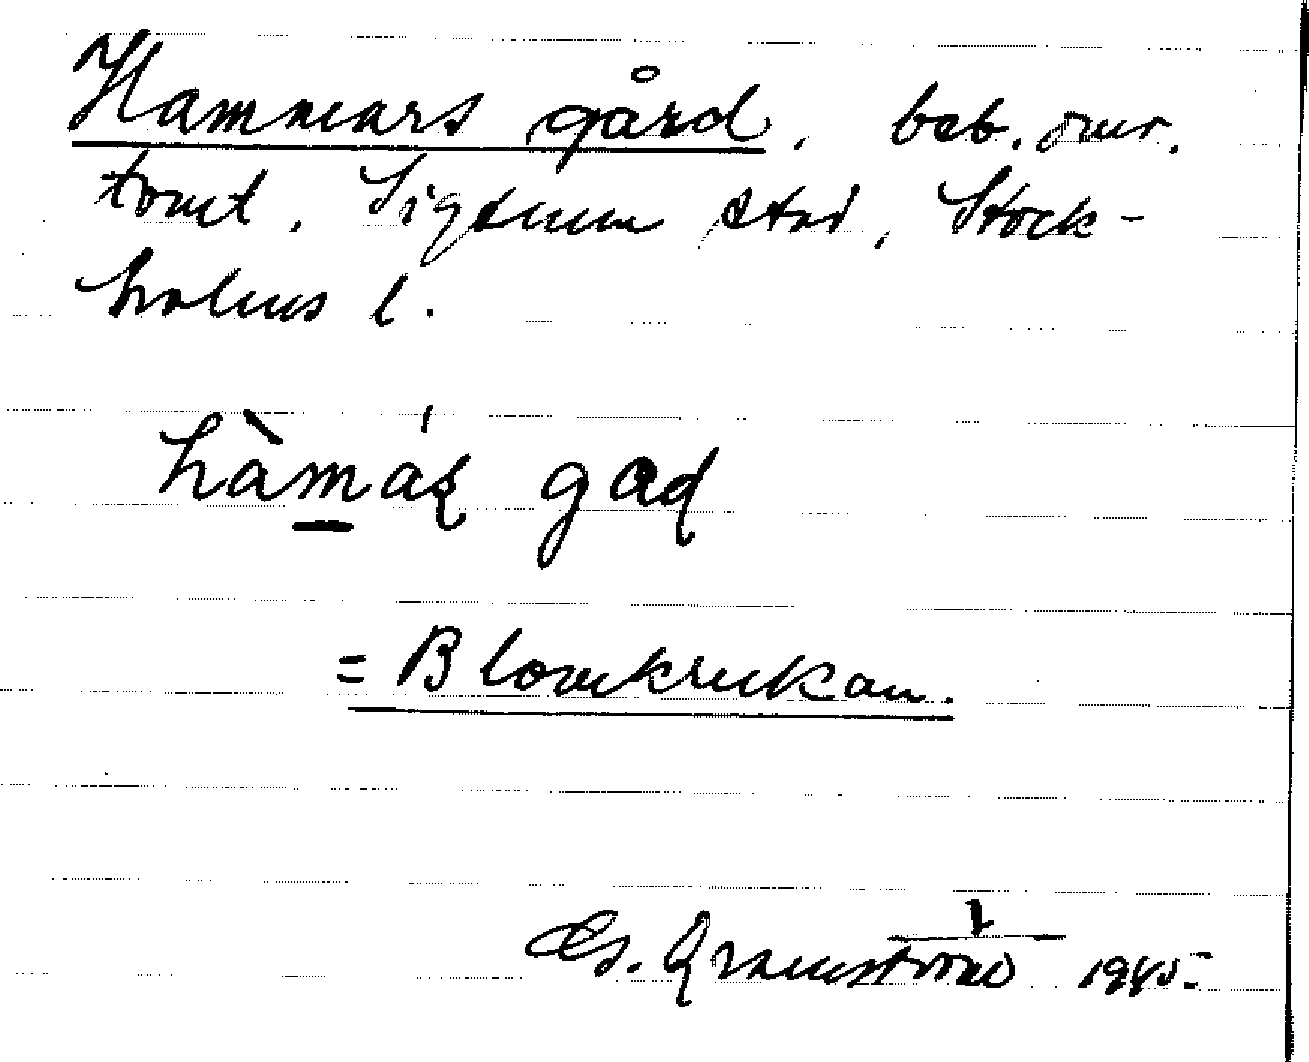 Hammars gård, beb. omr.
tomt, Sigtuna stad, Stock-
holms l.
hàmáʂ gaɖ
= Blomkrukan.
Granström 1945.